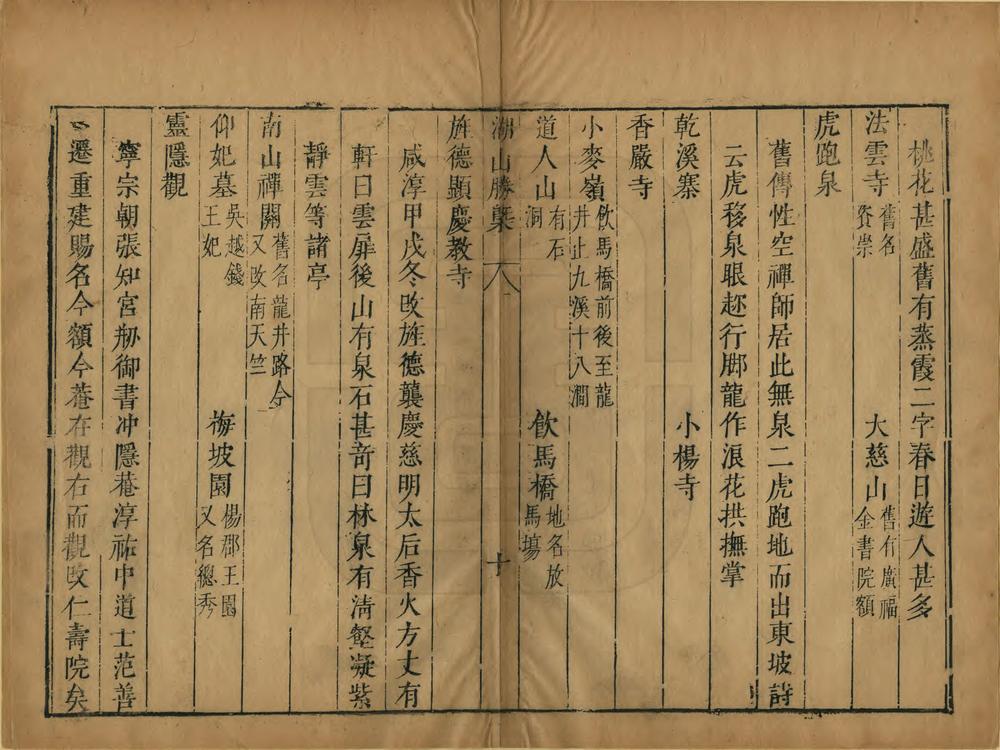 桃花甚盛舊有蒸霞二字春日遊人甚多
法雲寺舊名資崇　大慈山舊有廣福金書院額
虎跑泉
舊傳性空禪師居此無泉二虎跑地而出東坡詩
云虎移泉眼趂行脚龍作浪花拱撫掌
乾溪寨　小楊寺
香嚴寺
小麥嶺飲馬橋前後至龍井止九溪十八澗
道人山有石洞　飲馬橋地名放馬塲
湖山勝槩　八　十
旌德顯慶教寺
咸淳甲戌冬改旌德襲慶慈明太后香火方丈有
軒曰雲扉後山有泉石甚奇曰林泉有淸壑凝紫
靜雲等諸亭
南山禪關舊名龍井路今又改南天竺
仰妃墓吳越錢王妃　梅坡園楊郡王園又名總秀
靈隱觀
寧宗朝張知宮刱御書冲隱菴淳祐中道士范善
遷重建賜名今額今菴在觀右而觀改仁壽院矣